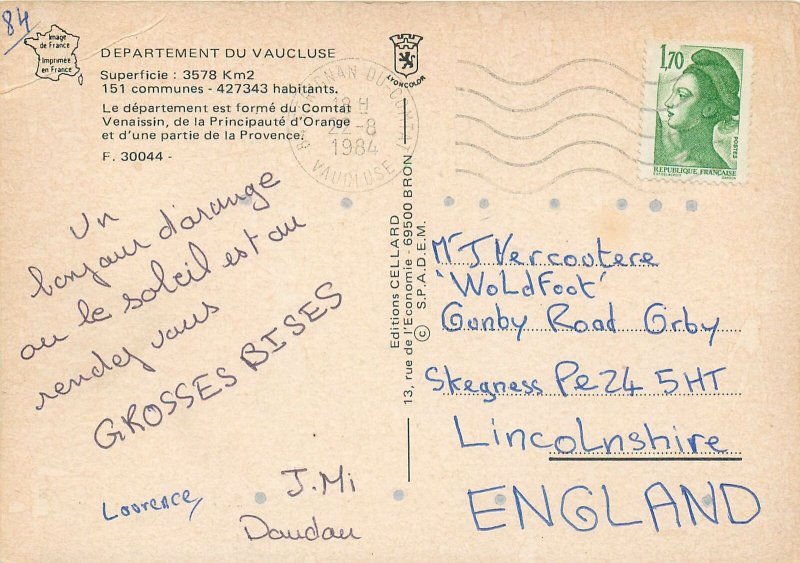 84
Image
de France
Imprimée
en France
DEPARTEMENT DU VAUCLUSE
Superficie : 3578 Km2
151 communes - 427343 habitants.
Le département est formé du Comtat
Venaissin, de la Principauté d'Orange
et d'une partie de la Provence.
F. 30044 -
LYONCOLOR
18 H
22-8
1984
VAUCLUSE
1,70
POSTES
REPUBLIQUE FRANÇAISE
Un
bonjour d'orange
ou le soleil est au
rendez vous
GROSSES BISES
J. Mi
Laurence
Doudou
Editions CELLARD
13, rue de l'Economie - 69500 BRON
© S.P.A.D.E.M.
Mr J Vercoutere
'WoLdFooT'
Gunby Road Orby
Skegness Pe24 5HT
Lincolnshire
ENGLAND